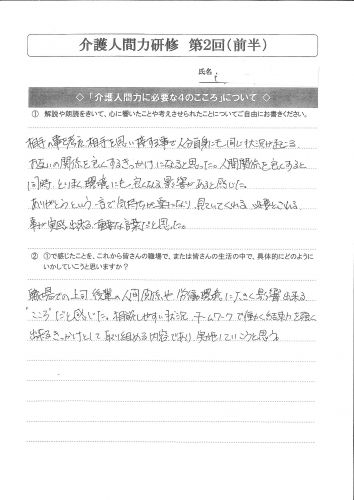 介護人間力研修　第2回(前半)
氏名
◇「介護人間力に必要な4のこころ」について ◇
① 解説や朗読をきいて、心に響いたことや考えさせられたことについてご自由にお書きください。
相手の事を考え、相手を思い接する事で人や自身にも同じ状況が起こる
お互いの関係を良くするきっかけになると思った。人間関係を良くすると
同時、とりまく環境にも良くなる影響があると感じた。
ありがとうという一言で気持ちが楽になり、見ていてくれる、必要とされる
事が実感出来る、重要な言葉だと思った。
② ①で感じたことを、これから皆さんの職場で、または皆さんの生活の中で、具体的にどのように
いかしていこうと思いますか？
職場での上司、後輩の人間関係や労働環境に大きく影響出来る
"こころ"だと感じた。相談しやすい状況、チームワークで働く結束力を強く
出来るきっかけとして取り組める内容であり、実施していこうと思う。